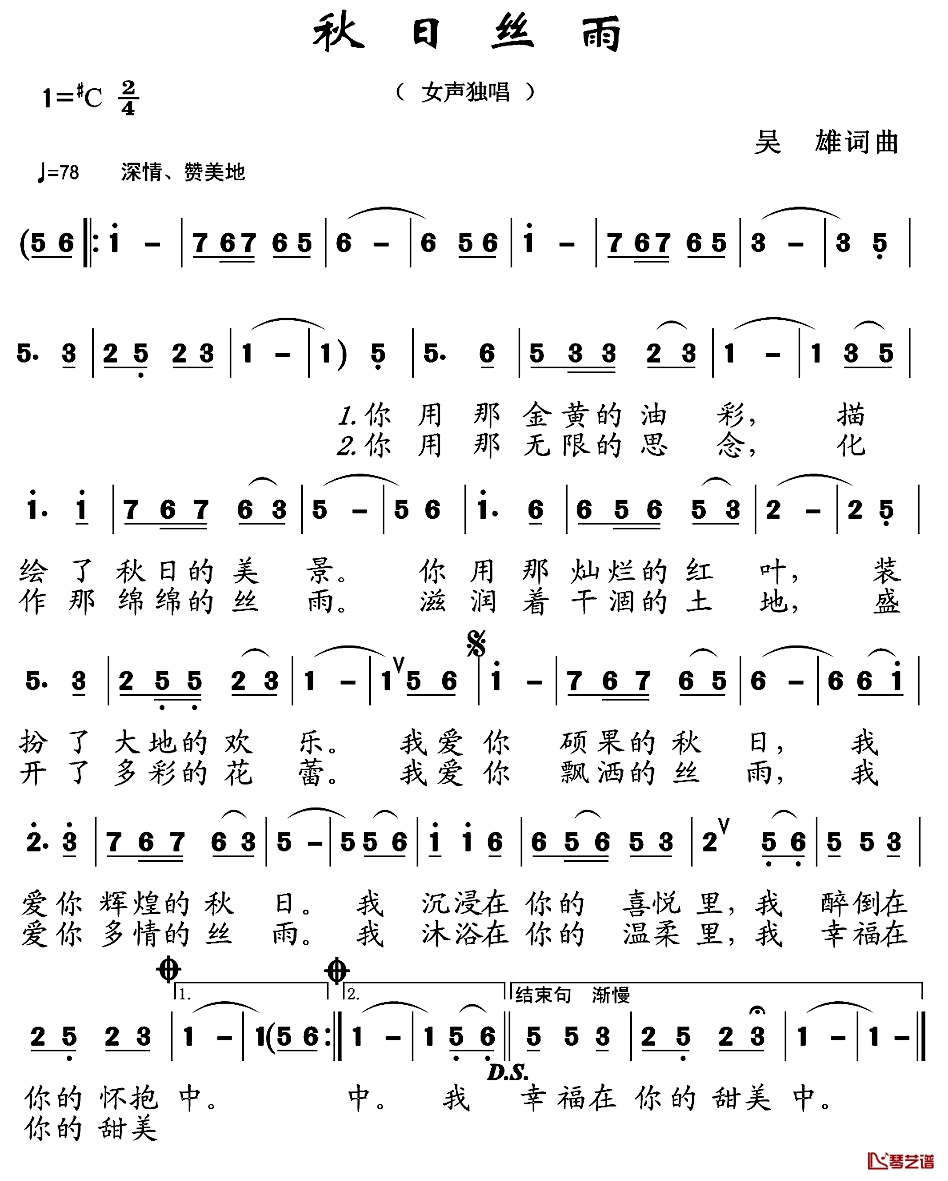 秋日丝雨
1=#C 2/4 （女声独唱）
吴 雄词曲
♩=78 深情、赞美地
(5 6 ‖: i - | 7 6 7 6 5 | 6 - | 6 5 6 | i - | 7 6 7 6 5 | 3 - | 3 5 |
5. 3 | 2 5 2 3 | 1 - | 1) 5 | 5. 6 | 5 3 3 2 3 | 1 - | 1 3 5 |
1.你 用 那 金黄的 油 彩， 描
2.你 用 那 无限的 思 念， 化
i. i | 7 6 7 6 3 | 5 - | 5 6 | i. 6 | 6 5 6 5 3 | 2 - | 2 5 |
绘 了 秋日的 美 景。 你 用 那 灿烂的 红 叶， 装
作 那 绵绵的 丝 雨。 滋 润 着 干涸的 土 地， 盛
5. 3 | 2 5 5 2 3 | 1 - | 1 5 6 | i - | 7 6 7 6 5 | 6 - | 6 6 i |
扮 了 大地的 欢 乐。 我 爱 你 硕果的 秋 日， 我
开 了 多彩的 花 蕾。 我 爱 你 飘洒的 丝 雨， 我
2. 3 | 7 6 7 6 3 | 5 - | 5 5 6 | i i 6 | 6 5 6 5 3 | 2 5 6 | 5 5 3 |
爱你 辉煌的 秋 日。 我 沉浸在 你的 喜悦 里，我 醉倒在
爱你 多情的 丝 雨。 我 沐浴在 你的 温柔 里，我 幸福在
1. 2. 结束句 渐慢
2 5 2 3 | 1 - | 1 (5 6 :‖ 1 - | 1 5 6 ‖ 5 5 3 | 2 5 2 3 | 1 - | 1 - ‖
D.S.
你的 怀抱 中。 中。 我 幸福在 你的 甜美 中。
你的 甜美
琴艺谱